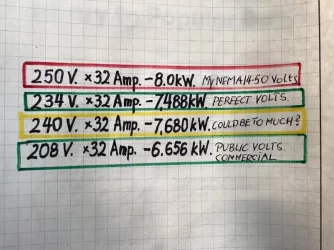 250 V. ×32 Amp. -8.0kW. My NEMA 14-50 Volts
234 V. ×32 Amp. -7,488kW. PERFECT VOLTS.
240 V. ×32 Amp. -7,680kW. COULD BE TO MUCH?
208 V. ×32 Amp. -6.656 kW. PUBLIC VOLTS.
COMMERCIAL